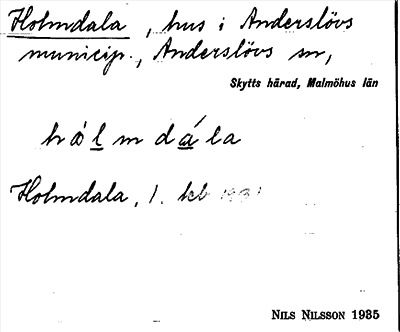 Holmdala, hus i Anderslövs
municip., Anderslövs sn,
Skytts härad, Malmöhus län
hålmdála
Holmdala, 1. feb
NILS NILSSON 1935